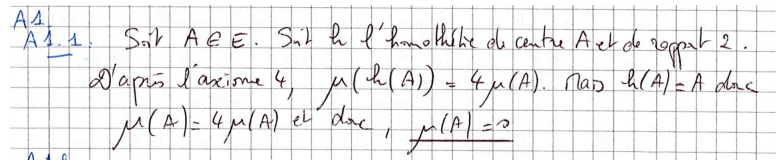 A1
A1.1. Soit A ∈ E. Soit h l'homothétie de centre A et de rapport 2.
D'après l'axiome 4, μ(h(A)) = 4μ(A). Mais h(A) = A donc
μ(A) = 4μ(A) et donc, μ(A) = 0